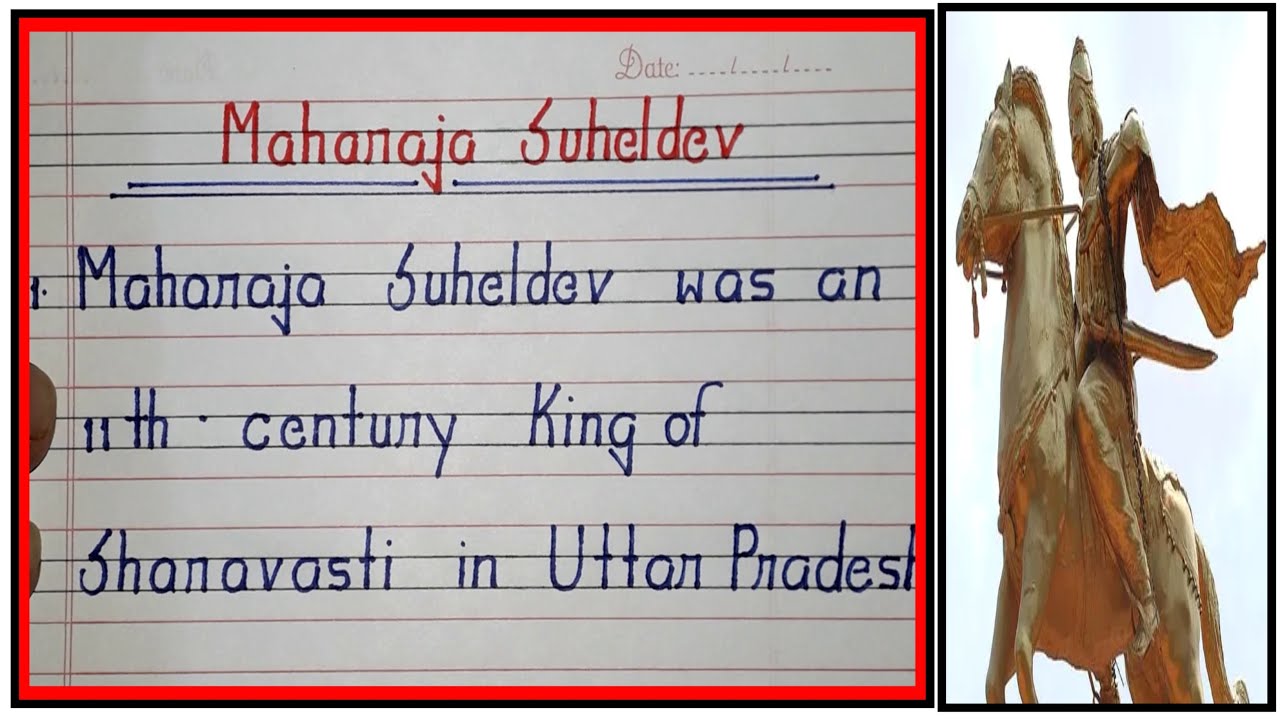 Date: ..../..../....
Maharaja Suheldev
1. Maharaja Suheldev was an
11th century King of
Sharavasti in Uttar Pradesh